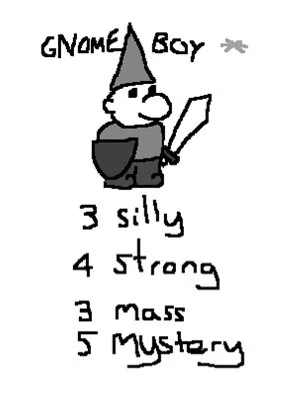 GNOME BOY *
3 silly
4 strong
3 mass
5 Mystery